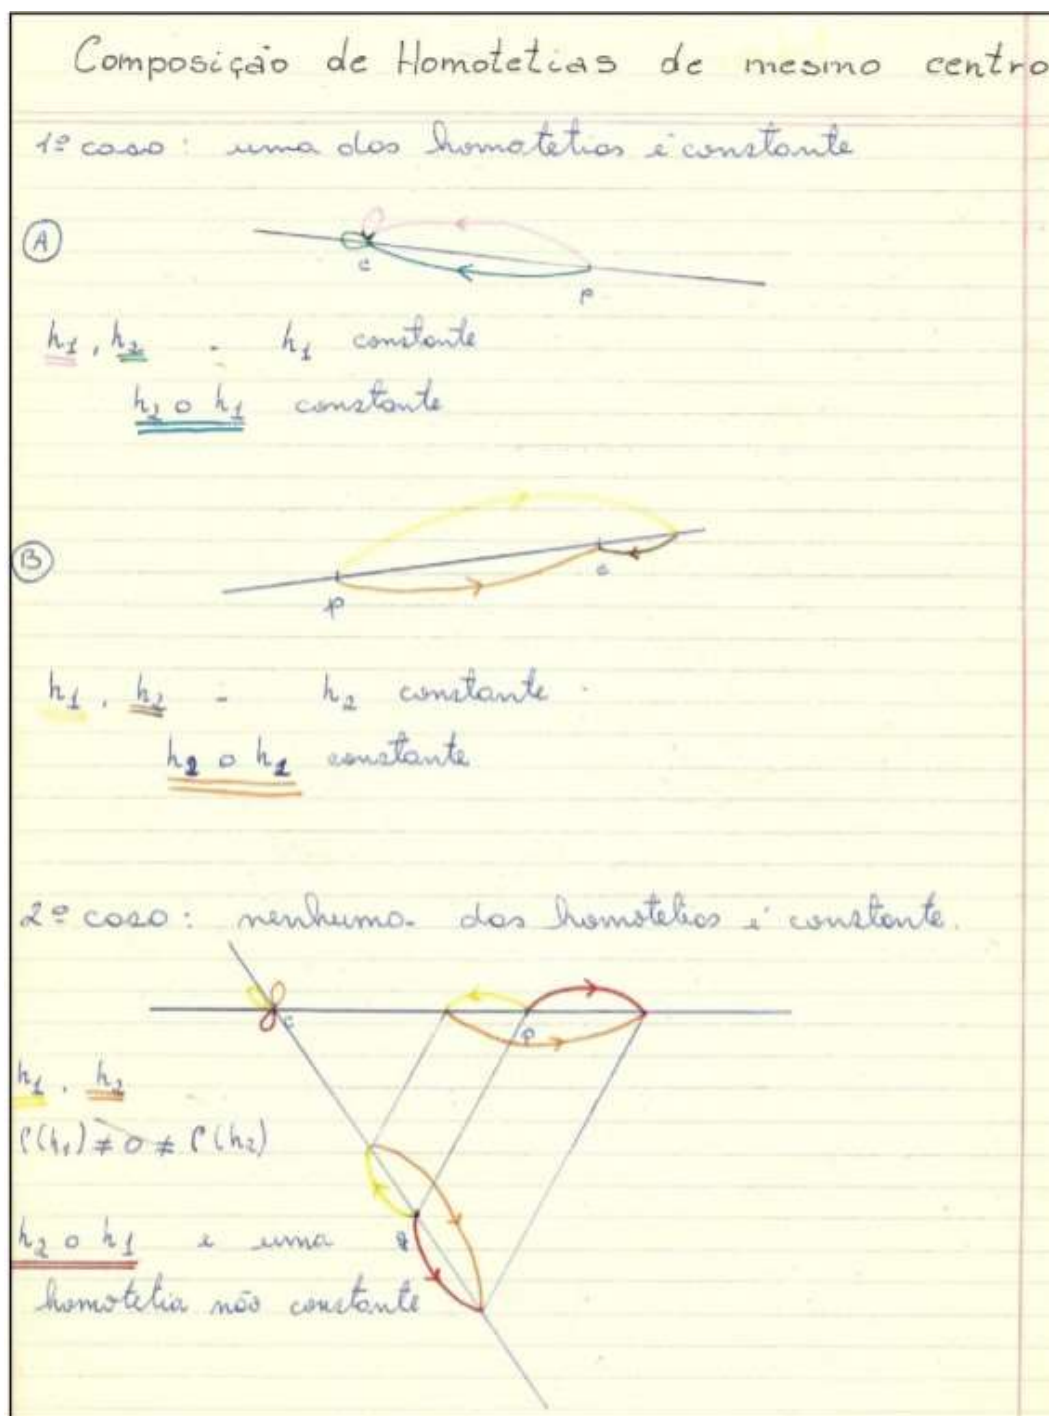 Composição de Homotetias de mesmo centro
1º caso: uma das homotetias é constante
A
c
p
h1, h2 - h1 constante
h2 o h1 constante
B
c
p
h1, h2 - h2 constante
h2 o h1 constante
2º caso: nenhuma das homotetias é constante.
c
p
h1, h2
ρ(h1) ≠ 0 ≠ ρ(h2)
h2 o h1 é uma
q
homotetia não constante